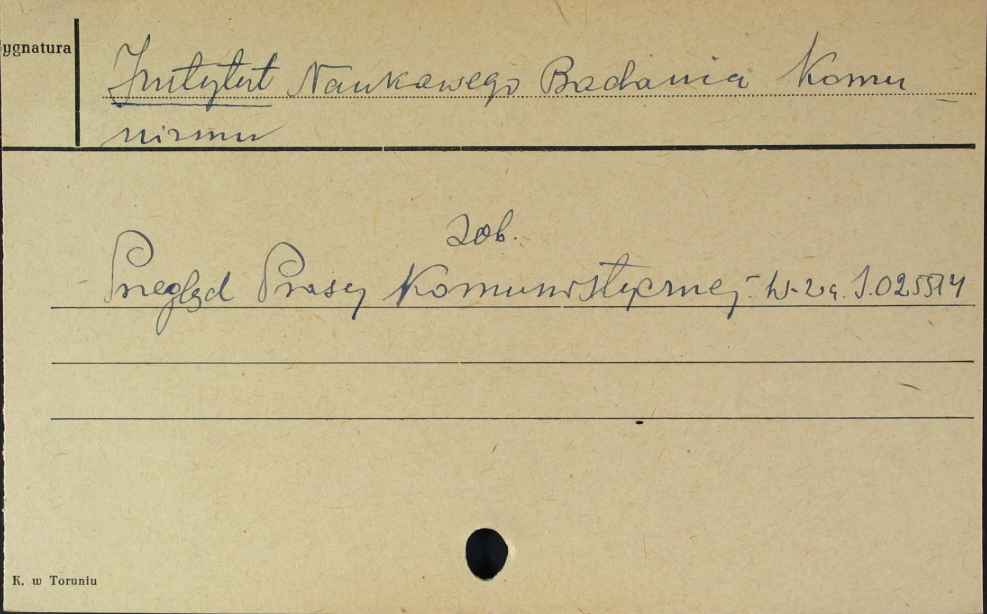 ygnatura
Instytut Naukowego Badania Komu
nizmu
zob.
Przegląd Prasy Komunistycznej. W-wa. S.025514
K. w Toruniu